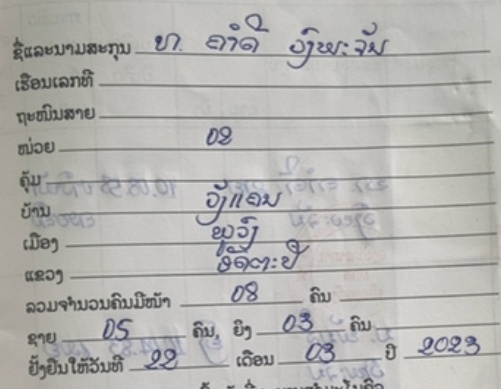 ຊື່ແລະນາມສະກຸນ ທ. ຄຳດີ ວົງພະຈັນ
ເຮືອນເລກທີ
ຖະໜົນສາຍ
ໜ່ວຍ 08
ຄຸ້ມ
ບ້ານ ວັງແຄນ
ເມືອງ ພູວົງ
ແຂວງ ອັດຕະປື
ລວມຈຳນວນຄົນມີໜ້າ 08 ຄົນ
ຊາຍ 05 ຄົນ, ຍິງ 03 ຄົນ
ຢັ້ງຢືນໃຫ້ວັນທີ 22 ເດືອນ 03 ປີ 2023